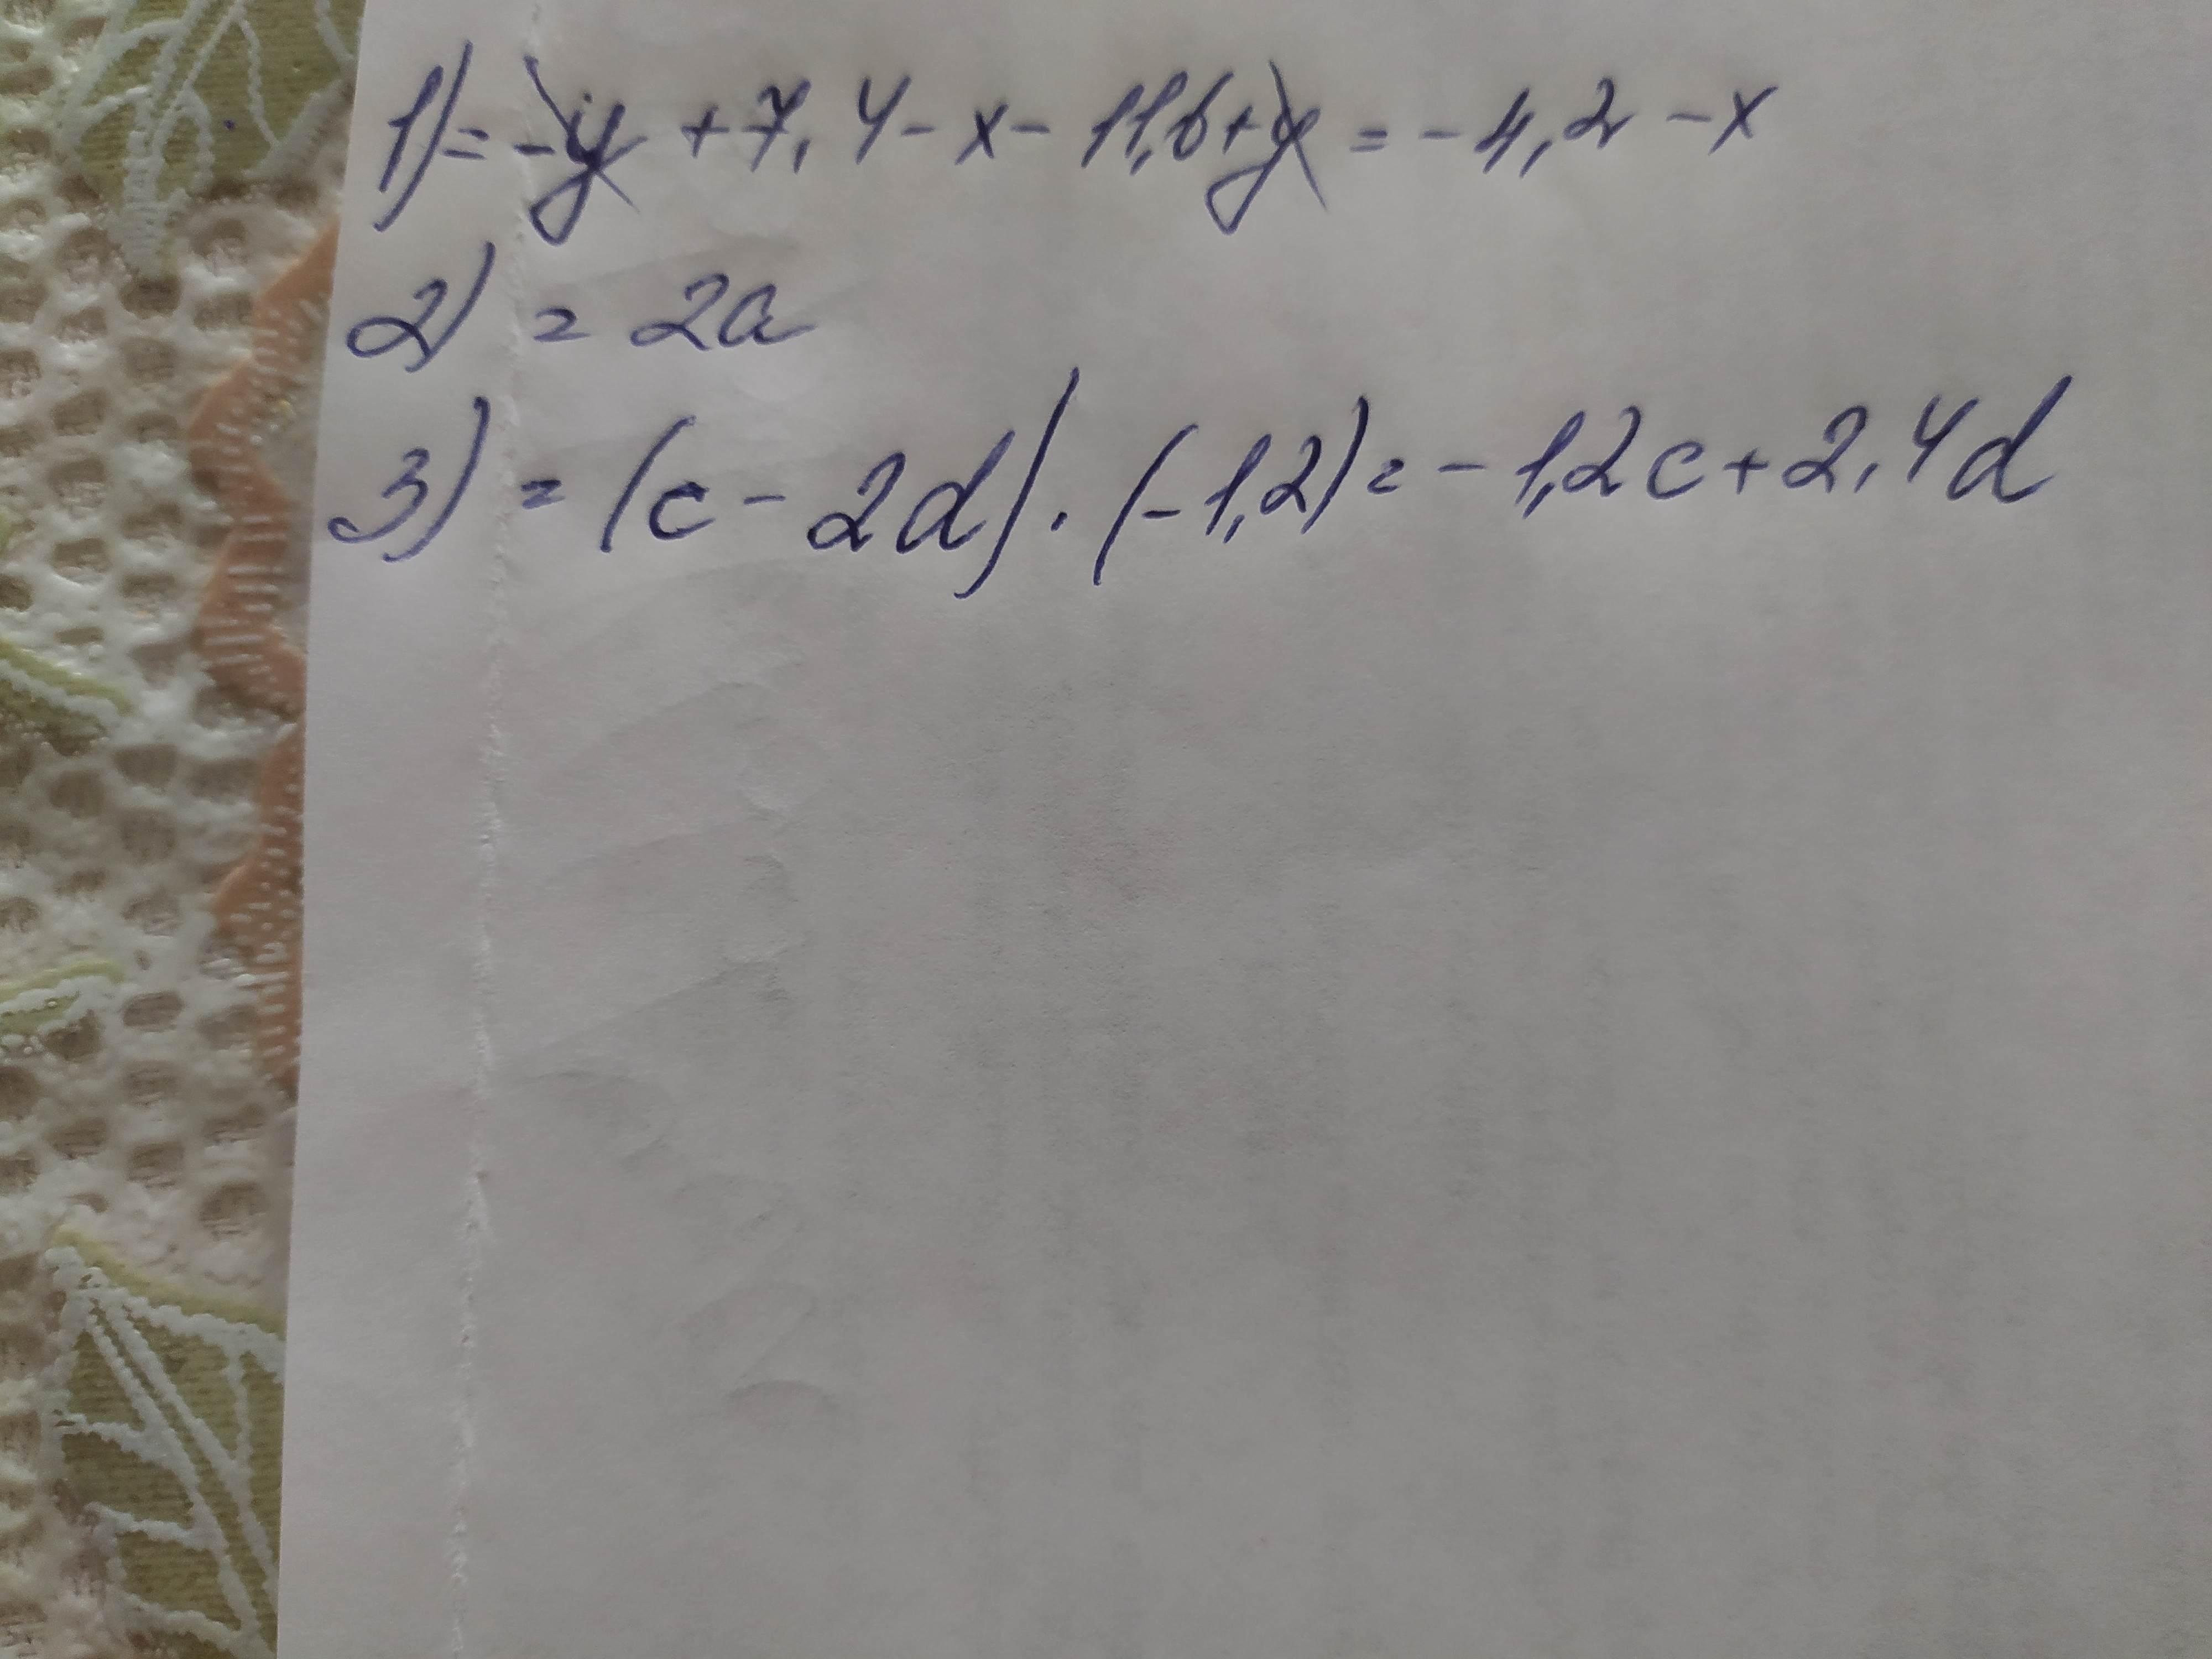 1) = -y + 7,4 - x - 11,6 + y = - 4,2 - x
2) = 2a
3) = (c - 2d) · (-1,2) = - 1,2c + 2,4d